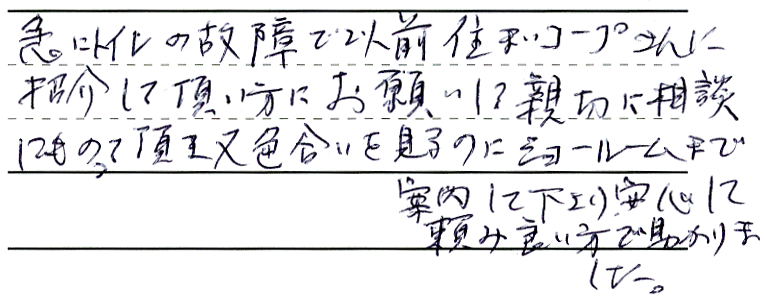 急にトイレの故障で以前住まいコープさんに
紹介して頂い方にお願いして親切に相談
にものって頂き又色合いを見るのにショールームまで
案内して下さり安心して
頼み良い方で助かりま
した。